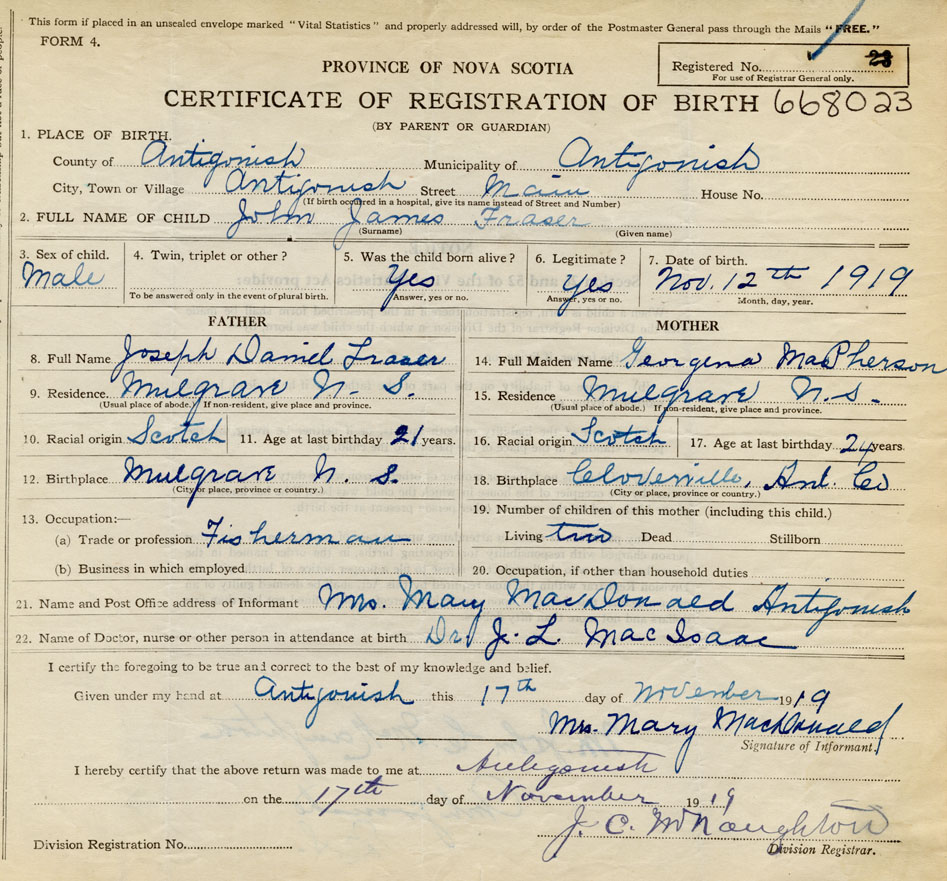 This form if placed in an unsealed envelope marked "Vital Statistics" and properly addressed will, by order of the Postmaster General pass through the Mails "FREE."
FORM 4.
Registered No. 23
For use of Registrar General only.
PROVINCE OF NOVA SCOTIA
CERTIFICATE OF REGISTRATION OF BIRTH 668023
(BY PARENT OR GUARDIAN)
1. PLACE OF BIRTH.
County of Antigonish Municipality of Antigonish
City, Town or Village Antigonish Street Main House No.
(If birth occured in a hospital, give its name instead of Street and Number)
2. FULL NAME OF CHILD John James Fraser
(Surname) (Given name)
3. Sex of child. 4. Twin, triplet or other ? 5. Was the child born alive ? 6. Legitimate ? 7. Date of birth.
Male Yes Yes Nov. 12th 1919
To be answered only in the event of plural birth. Answer, yes or no. Answer, yes or no. Month, day, year.
FATHER MOTHER
8. Full Name Joseph Daniel Fraser 14. Full Maiden Name Georgena MacPherson
9. Residence. Mulgrave N. S. 15. Residence Mulgrave N.S.
(Usual place of abode.) If non-resident, give place and province. (Usual place of abode.) If non-resident, give place and province.
10. Racial origin Scotch 11. Age at last birthday 21 years. 16. Racial origin Scotch 17. Age at last birthday 24 years.
12. Birthplace Mulgrave N. S. 18. Birthplace Cloverville, Ant. Co
(City or place, province or country.) (City or place, province or country.)
13. Occupation:— 19. Number of children of this mother (including this child.)
(a) Trade or profession Fisherman Living two Dead Stillborn
(b) Business in which employed 20. Occupation, if other than household duties
21. Name and Post Office address of Informant Mrs. Mary MacDonald Antigonish
22. Name of Doctor, nurse or other person in attendance at birth Dr. J. L. MacIsaac
I certify the foregoing to be true and correct to the best of my knowledge and belief.
Given under my hand at Antigonish this 17th day of November 1919
Mrs. Mary MacDonald
Signature of Informant.
I hereby certify that the above return was made to me at Antigonish
on the 17th day of November 1919
J. C. McNaughton
Division Registration No. Division Registrar.